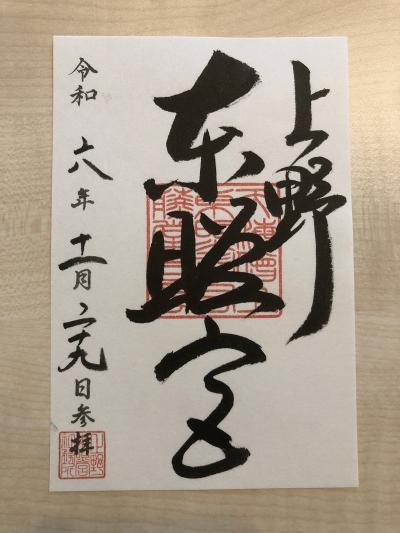 上野
東照宮
令和六年十一月二十九日参拝